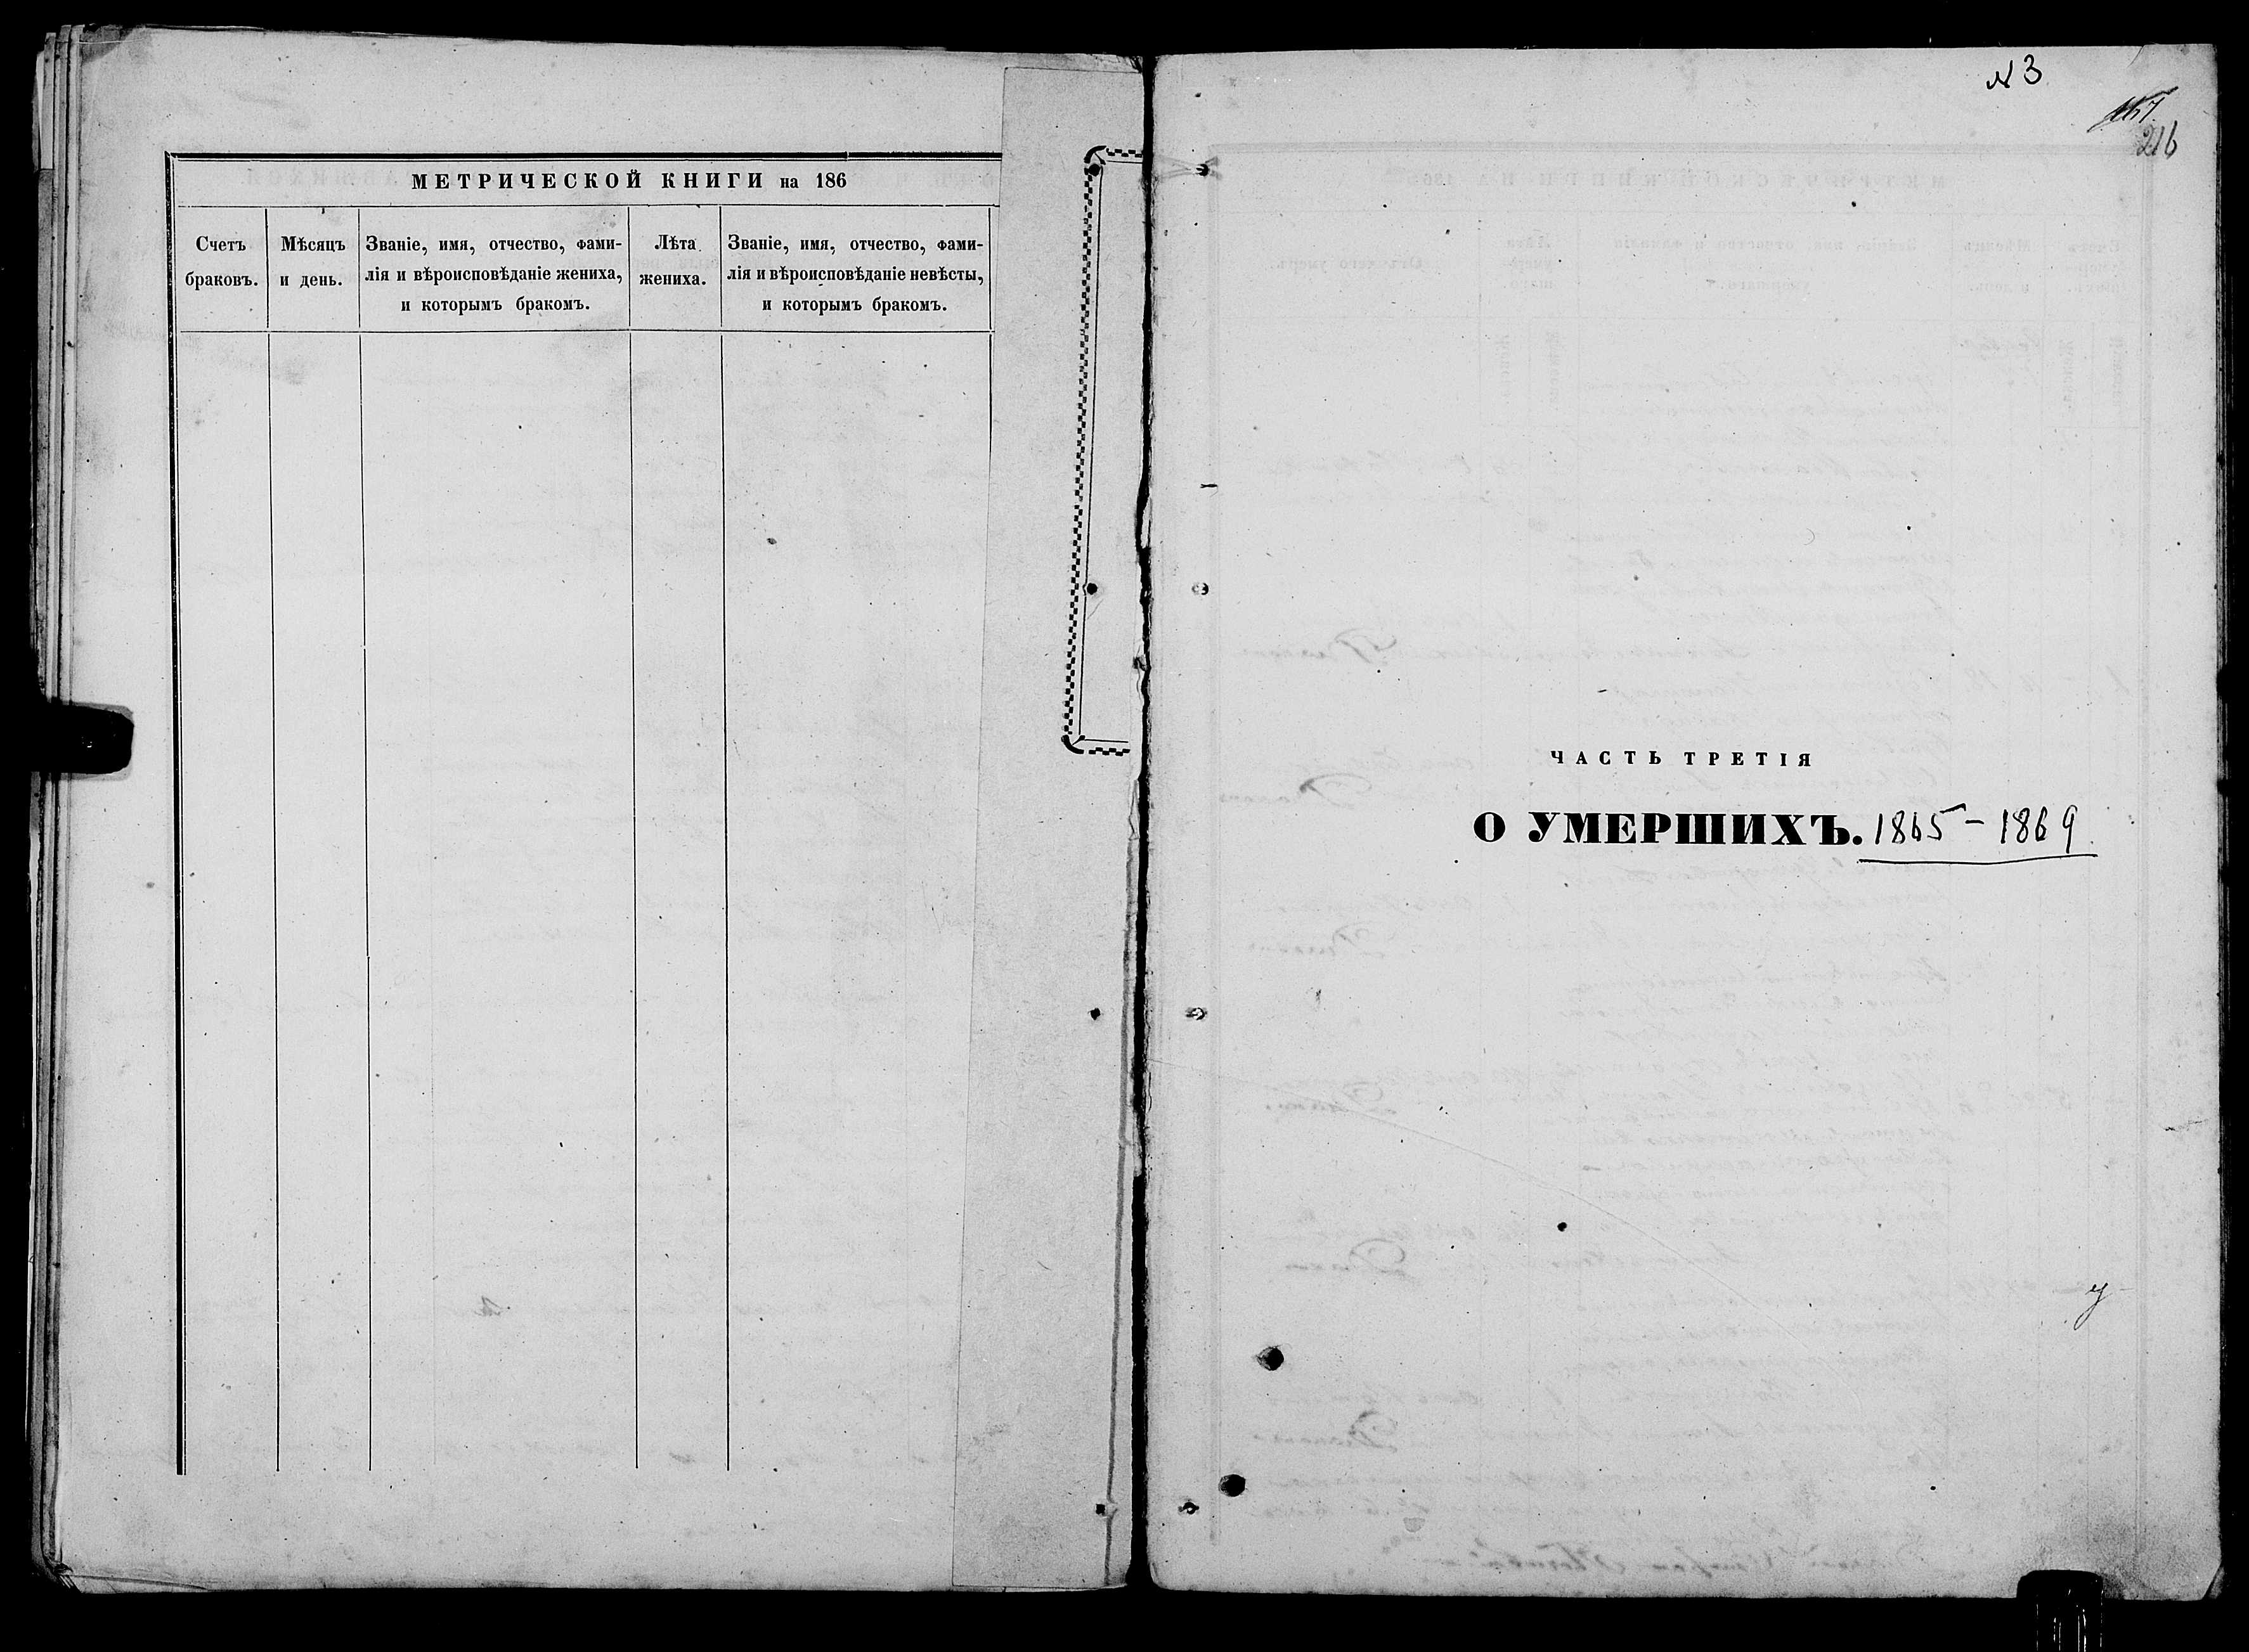 МЕТРИЧЕСКОЙ КНИГИ на 186
Счетъ браковъ.
Мѣсяцъ и день.
Званіе, имя, отчество, фами-
лія и вѣроисповѣданіе жениха,
и которымъ бракомъ.
Лѣта жениха.
Званіе, имя, отчество, фами-
лія и вѣроисповѣданіе невѣсты,
и которымъ бракомъ.
№ 3
216
ЧАСТЬ ТРЕТІЯ
О УМЕРШИХЪ. 1865 – 1869